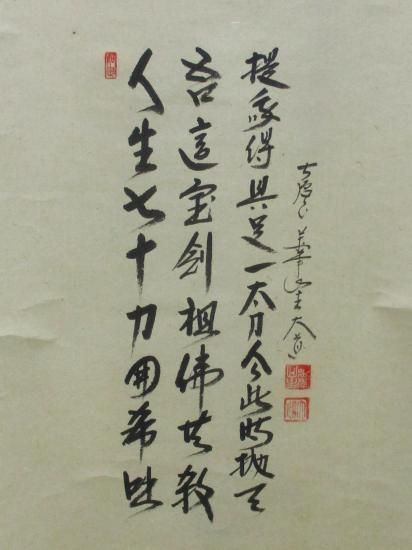 人生七十力囲希咄
吾這宝剣祖佛共殺
提我得具足一太刀今此時抛天
大道